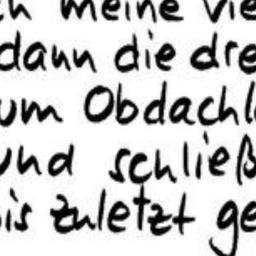 ch meine vie
dann die dre
um Obdachl
und schließ
is zuletzt ge